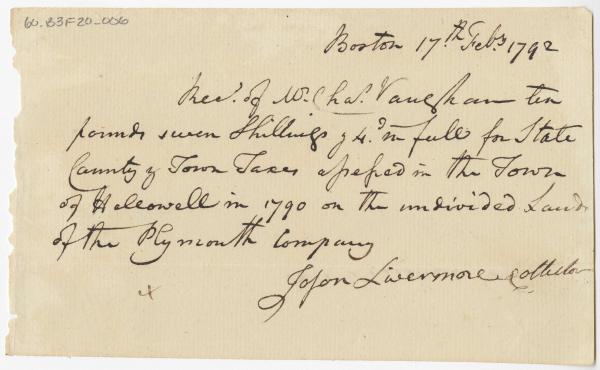 60.B3F20-006
Boston 17.th Feb.y 1792
Rec.d of Mr. Chas. Vaughan ten
pounds seven Shillings & 4.d in full for State
County & Town Taxes assessed in the Town
of Hallowell in 1790 on the undivided Lands
of the Plymouth Company
Jason Livermore Collector
x